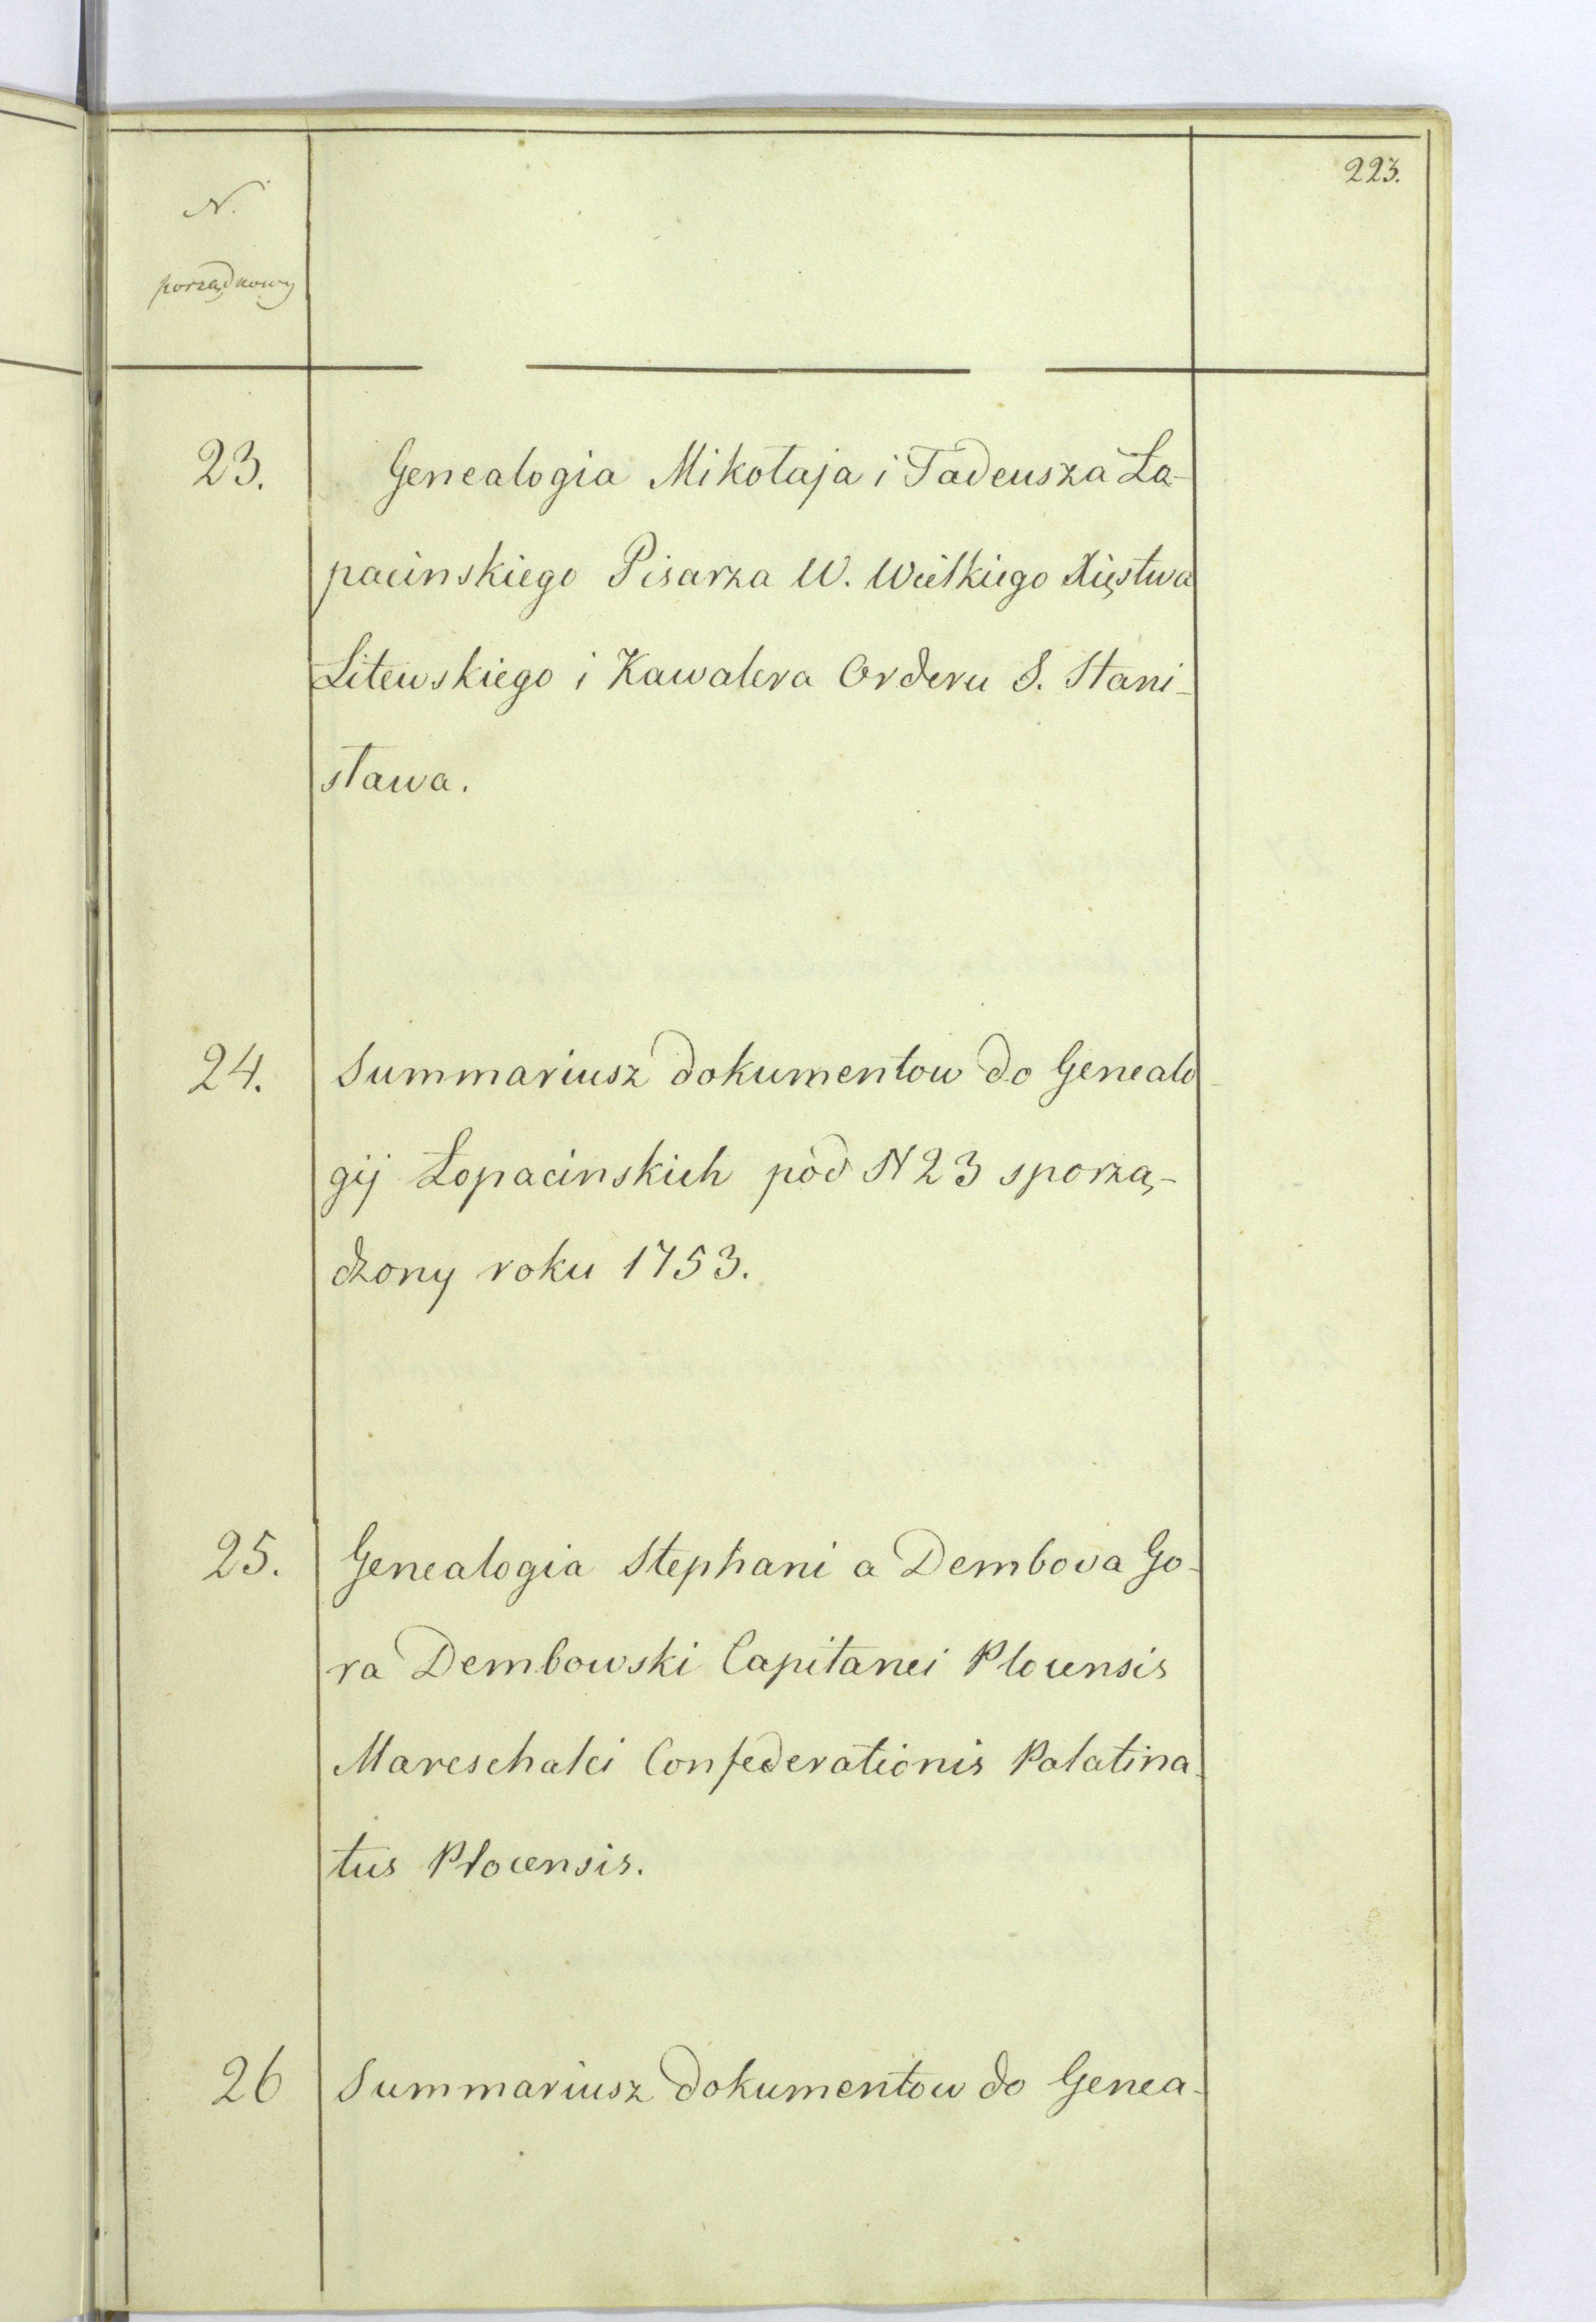 223.
N.
porządkowy
23. Genealogia Mikołaja i Tadeusza Ła-
pacinskiego Pisarza W. Wielkiego Xięstwa
Litewskiego i Kawalera Orderu S. Stani-
sława.
24. Summariusz dokumentow do Genealo-
gij Łopacinskich pod N 23 sporzą-
dzony roku 1753.
25. Genealogia Stephani a Dembova Go-
ra Dembowski Capitanei Plocensis
Mareschalci Confederationis Palatina-
tus Plocensis.
26 Summariusz dokumentow do Genea-